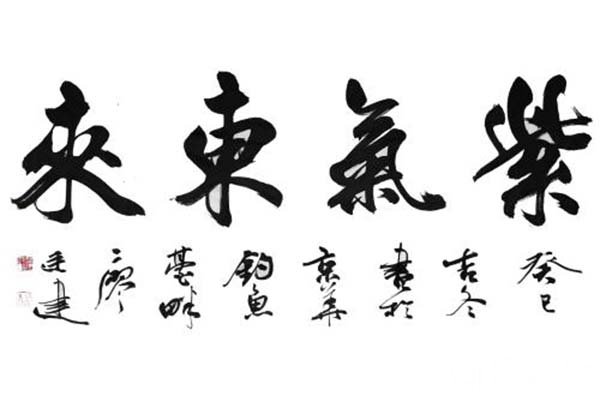 紫氣東來
癸巳吉冬書於京華釣魚臺畔廖建